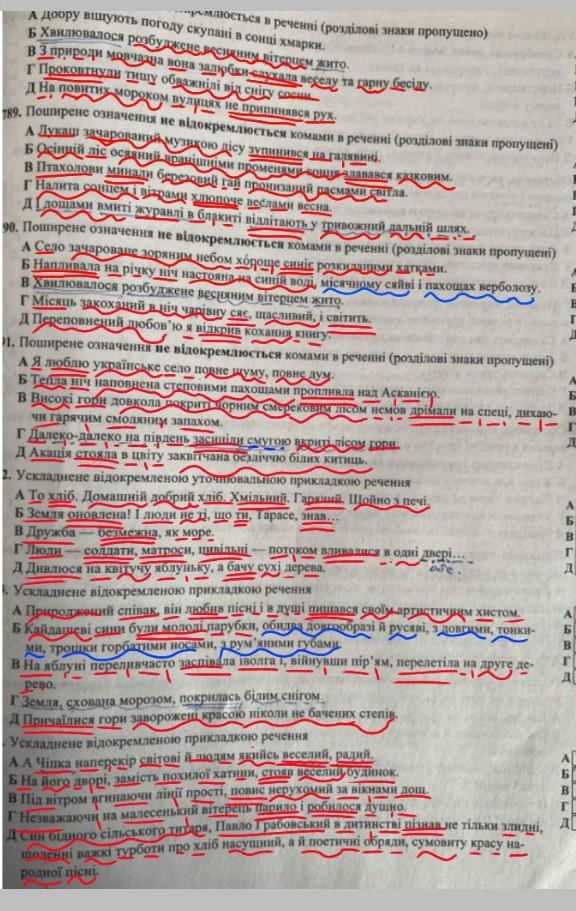 ється в реченні (розділові знаки пропущено)
А Добру віщують погоду скупані в сонці хмарки.
Б Хвилювалося розбуджене весняним вітерцем жито.
В З природи мовчазна вона залюбки слухала веселу та гарну бесіду.
Г Проковтнули тишу обважнілі від снігу сосни.
Д На повитих мороком вулицях не припинявся рух.
789. Поширене означення не відокремлюється комами в реченні (розділові знаки пропущені)
А Лукаш зачарований музикою лісу зупинився на галявині.
Б Осінній ліс осяяний вранішніми променями сонця здавався казковим.
В Птахолови минали березовий гай пронизаний пасмами світла.
Г Налита сонцем і вітрами хлюпоче веслами весна.
Д І дощами вмиті журавлі в блакиті відлітають у тривожний дальній шлях.
90. Поширене означення не відокремлюється комами в реченні (розділові знаки пропущені)
А Село зачароване зоряним небом хороше синіє розкиданими хатками.
Б Напливала на річку ніч настояна на синій воді, місячному сяйві і пахощах верболозу.
В Хвилювалося розбуджене весняним вітерцем жито.
Г Місяць закоханий в ніч чарівну сяє, щасливий, і світить.
Д Переповнений любов'ю я відкрив кохання книгу.
91. Поширене означення не відокремлюється комами в реченні (розділові знаки пропущені)
А Я люблю українське село повне шуму, повне дум.
Б Тепла ніч наповнена степовими пахощами пропливла над Асканією.
В Високі гори довкола покриті чорним смерековим лісом немов дрімали на спеці, дихаю-
чи гарячим смоляним запахом.
Г Далеко-далеко на південь засиніли смугою вкриті лісом гори.
Д Акація стояла в цвіту заквітчана безліччю білих китиць.
2. Ускладнене відокремленою уточнювальною прикладкою речення
А То хліб. Домашній добрий хліб. Хмільний. Гарячий. Щойно з печі.
Б Земля оновлена! І люди не ті, що ти, Тарасе, знав...
В Дружба — безмежна, як море.
Г Люди — солдати, матроси, цивільні — потоком вливалися в одні двері...
Д Дивлюся на квітучу яблуньку, а бачу сухі дерева.
обе.
3. Ускладнене відокремленою прикладкою речення
А Природжений співак, він любив пісні і в душі пишався своїм артистичним хистом.
Б Кайдашеві сини були молоді парубки, обидва довгообразі й русяві, з довгими, тонки-
ми, трошки горбатими носами, з рум'яними губами
В На яблуні переливчасто заспівала іволга і, війнувши пір'ям, перелетіла на друге де-
рево.
Г Земля, схована морозом, покрилась білим снігом.
Д Причаїлися гори заворожені красою ніколи не бачених степів.
. Ускладнене відокремленою прикладкою речення
А А Чіпка наперекір світові й людям якийсь веселий, радий.
Б На його дворі, замість похилої хатини, стояв веселий будинок.
В Під вітром вгинаючи лінії прості, повис нерухомий за вікнами дощ.
Г Незважаючи на малесенький вітерець парило і робилося душно.
Д Син бідного сільського титаря, Павло Грабовський в дитинстві пізнав не тільки злидні,
щоденні важкі турботи про хліб насущний, а й поетичні обряди, сумовиту красу на-
родної пісні.